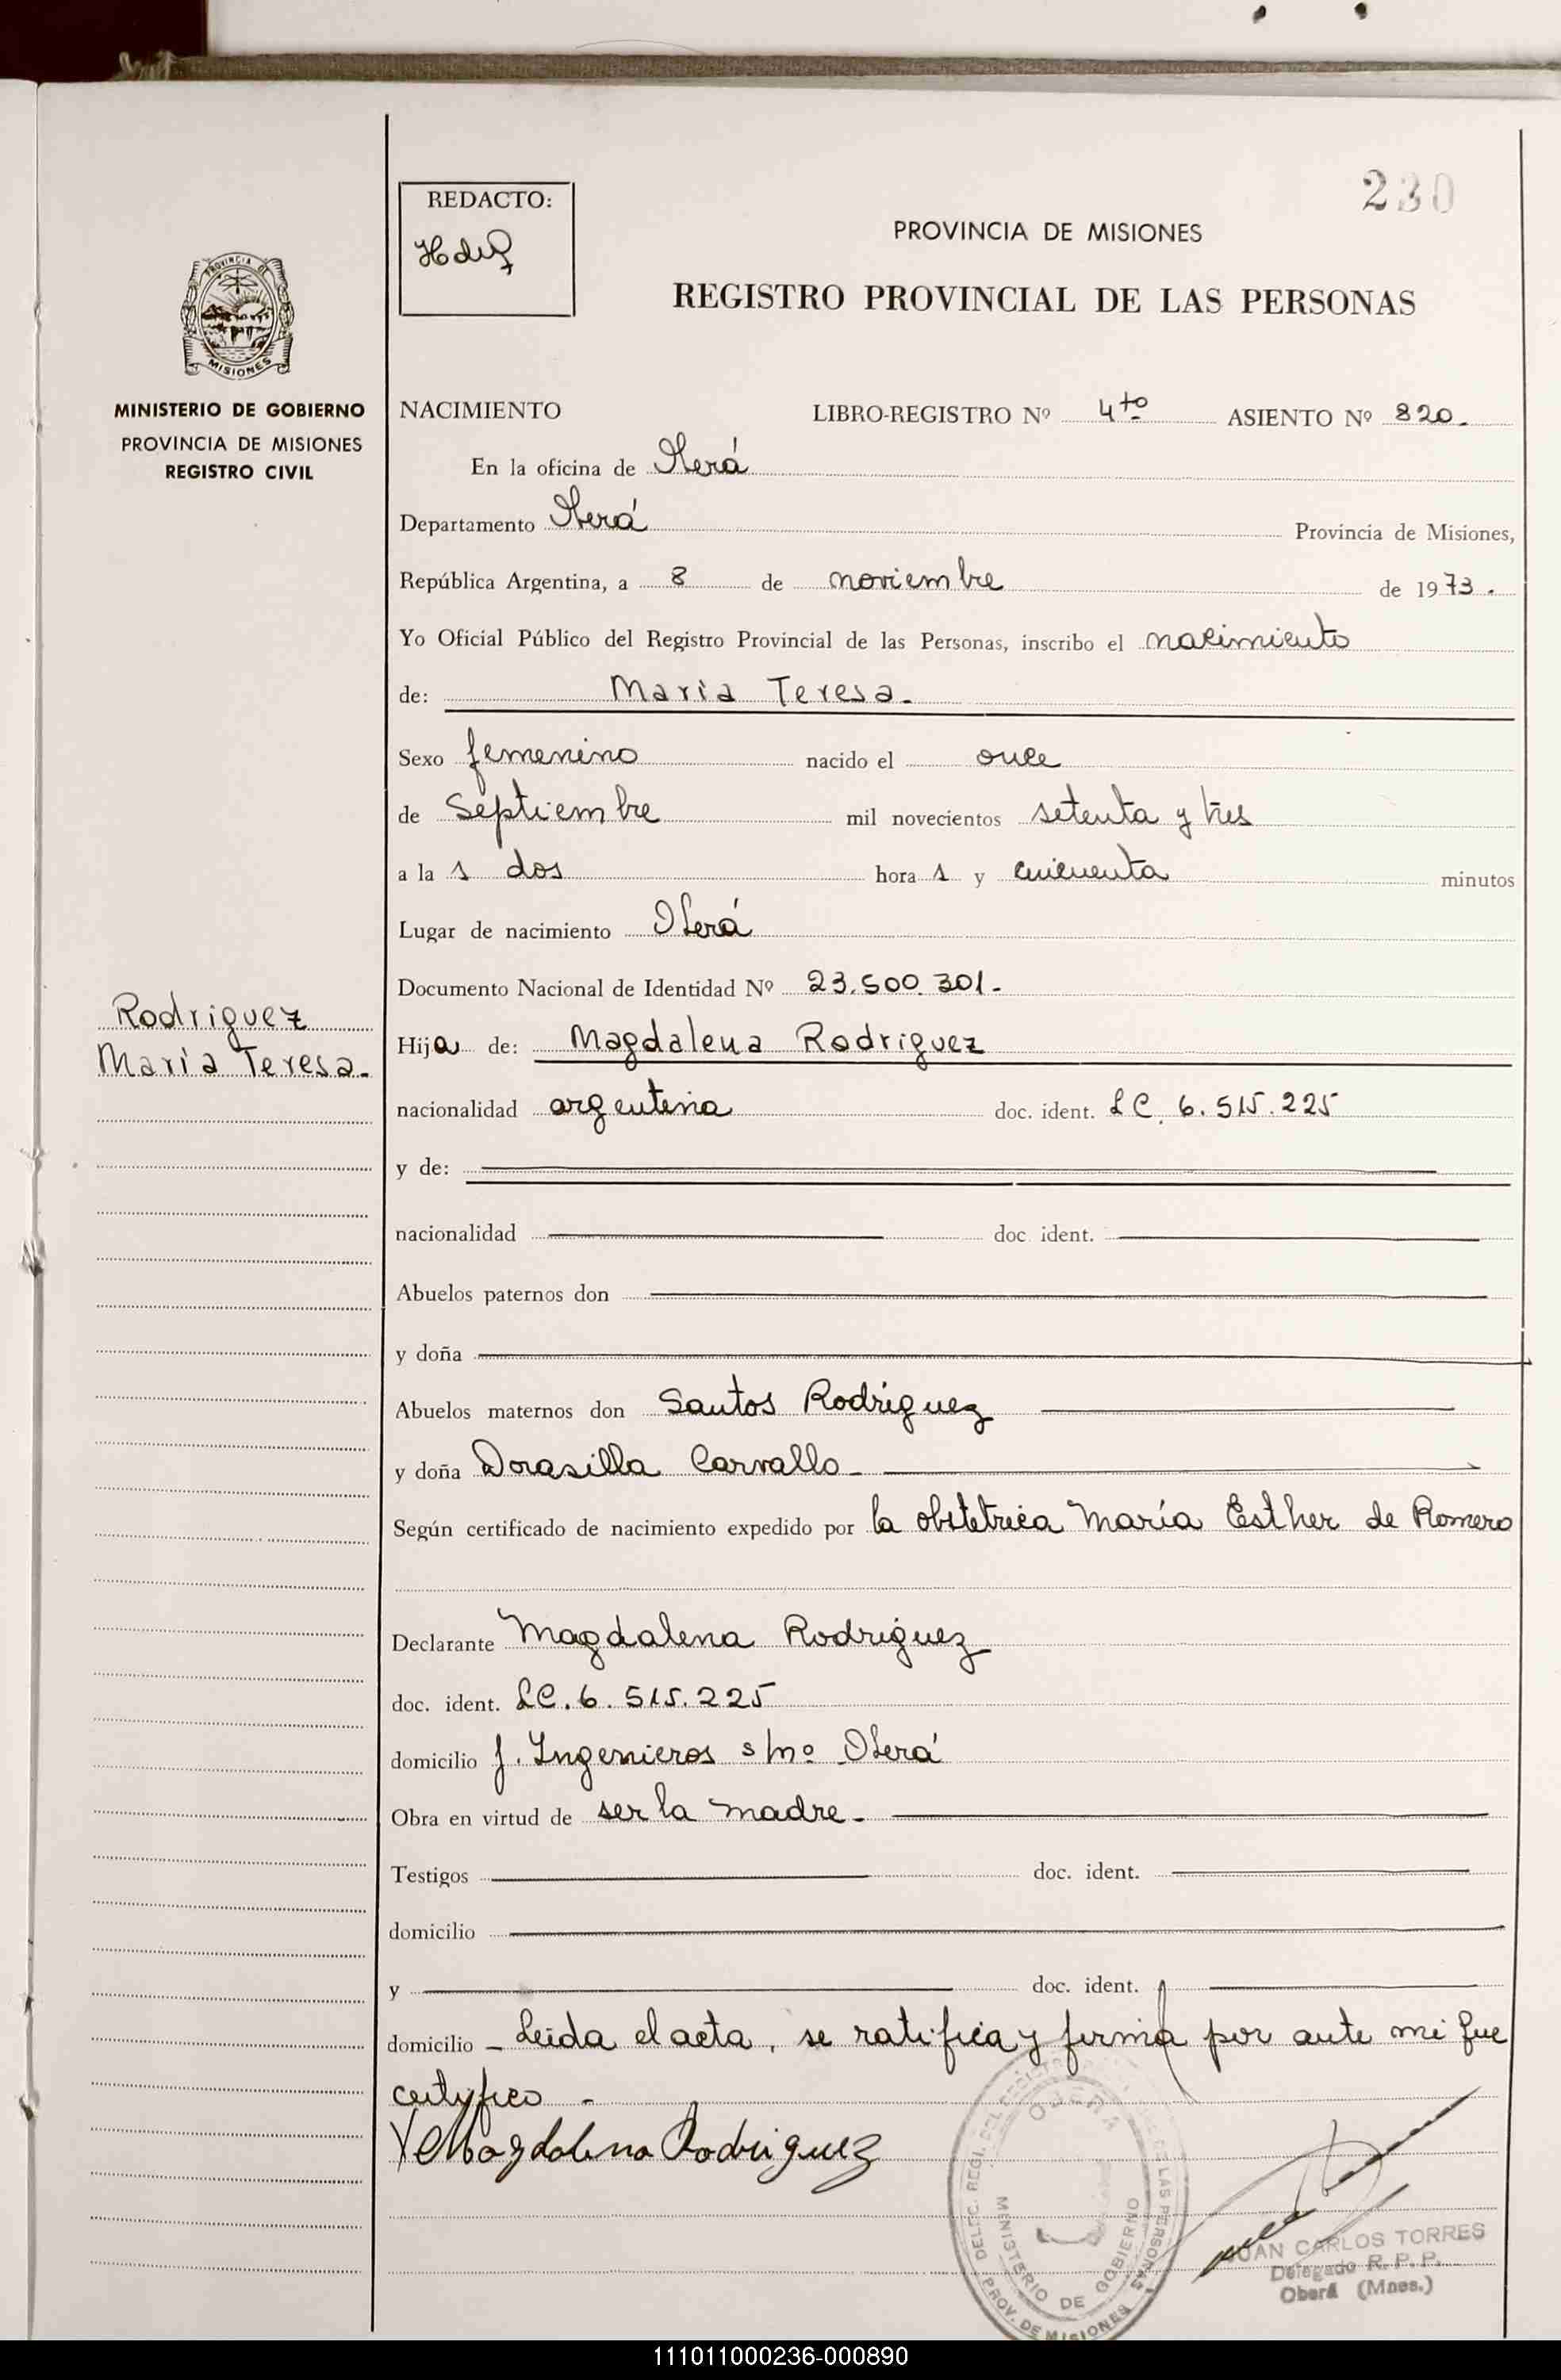 230
REDACTO:
PROVINCIA DE MISIONES
REGISTRO PROVINCIAL DE LAS PERSONAS
PROVINCIA DE
MISIONES
MINISTERIO DE GOBIERNO
PROVINCIA DE MISIONES
REGISTRO CIVIL
NACIMIENTO LIBRO-REGISTRO Nº 4to ASIENTO Nº 820.
En la oficina de Oberá
Departamento Oberá Provincia de Misiones,
República Argentina, a 8 de noviembre de 1973.
Yo Oficial Público del Registro Provincial de las Personas, inscribo el nacimiento
de: María Teresa.
Sexo femenino nacido el once
de Septiembre mil novecientos setenta y tres
a las dos horas y cincuenta minutos
Lugar de nacimiento Oberá
Documento Nacional de Identidad Nº 23.500.301.
Rodriguez
María Teresa.
Hija de: Magdalena Rodriguez
nacionalidad argentina doc. ident. LC. 6.515.225
y de:
nacionalidad doc. ident.
Abuelos paternos don
y doña
Abuelos maternos don Santos Rodriguez
y doña Dorasilla Carvallo
Según certificado de nacimiento expedido por la obstetrica María Esther de Romero
Declarante Magdalena Rodriguez
doc. ident. LC. 6.515.225
domicilio J. Ingenieros s/nº Oberá
Obra en virtud de ser la madre.
Testigos doc. ident.
domicilio
y doc. ident.
domicilio - Leída el acta, se ratifica y firma por ante mi que
certifico -
Magdalena Rodriguez
DELEG. REGI. DE LAS PERSONAS
OBERA
MINISTERIO DE GOBIERNO
PROV. DE MISIONES
JUAN CARLOS TORRES
Delegado R. P. P.
Oberá (Mnes.)
111011000236-000890